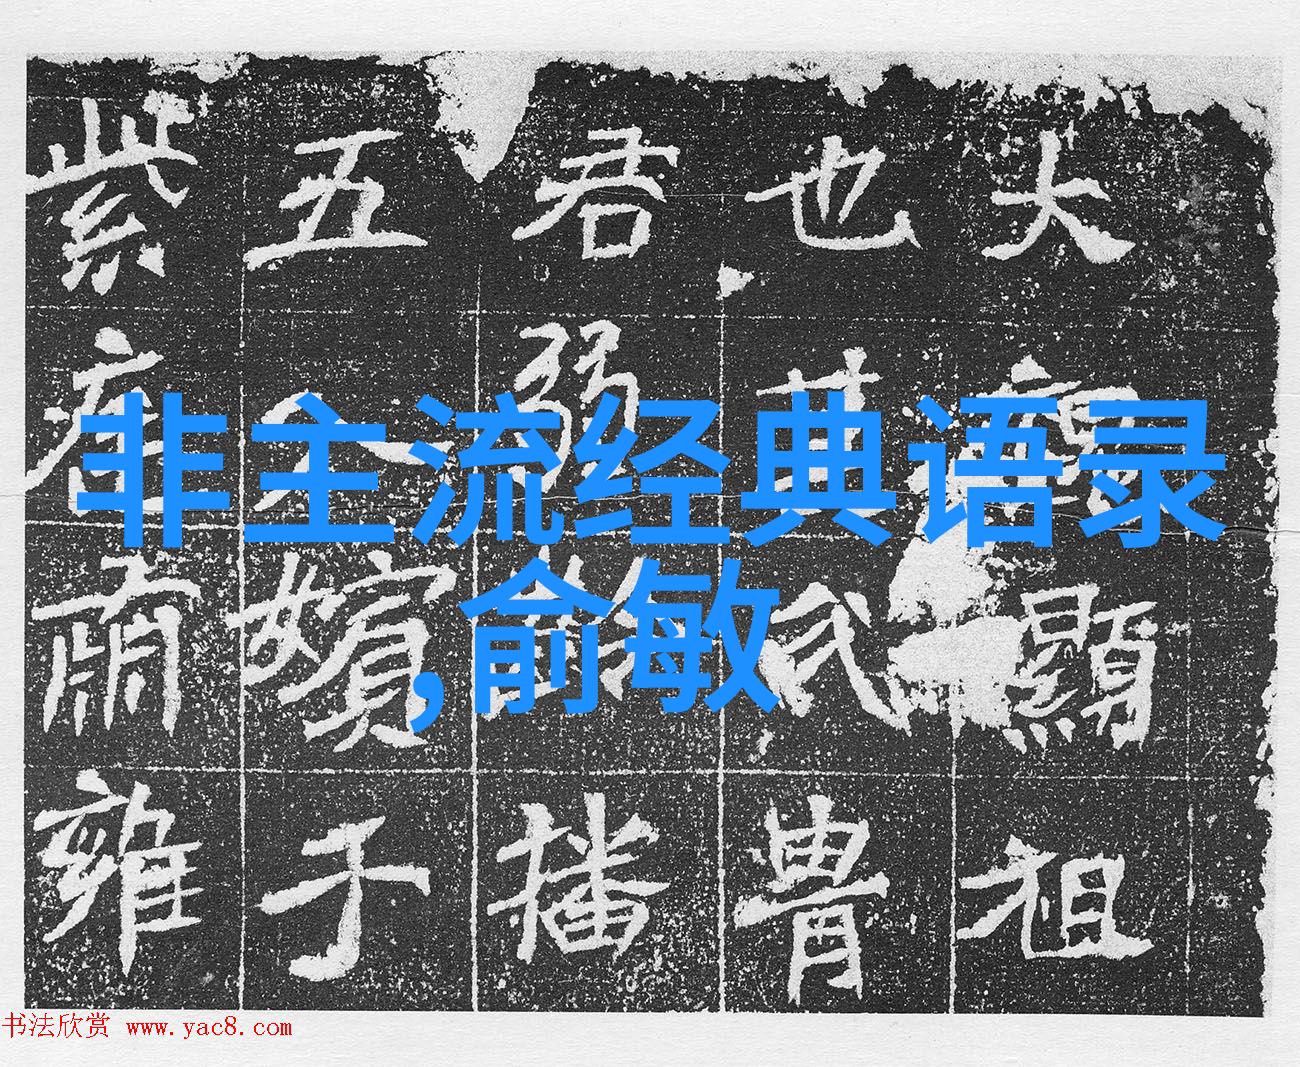 非主流经典语录
,俞敏
大顯祖
也氏胄
君弱播
五嬪于
紫肅雍
书法欣赏 www.yac8.com